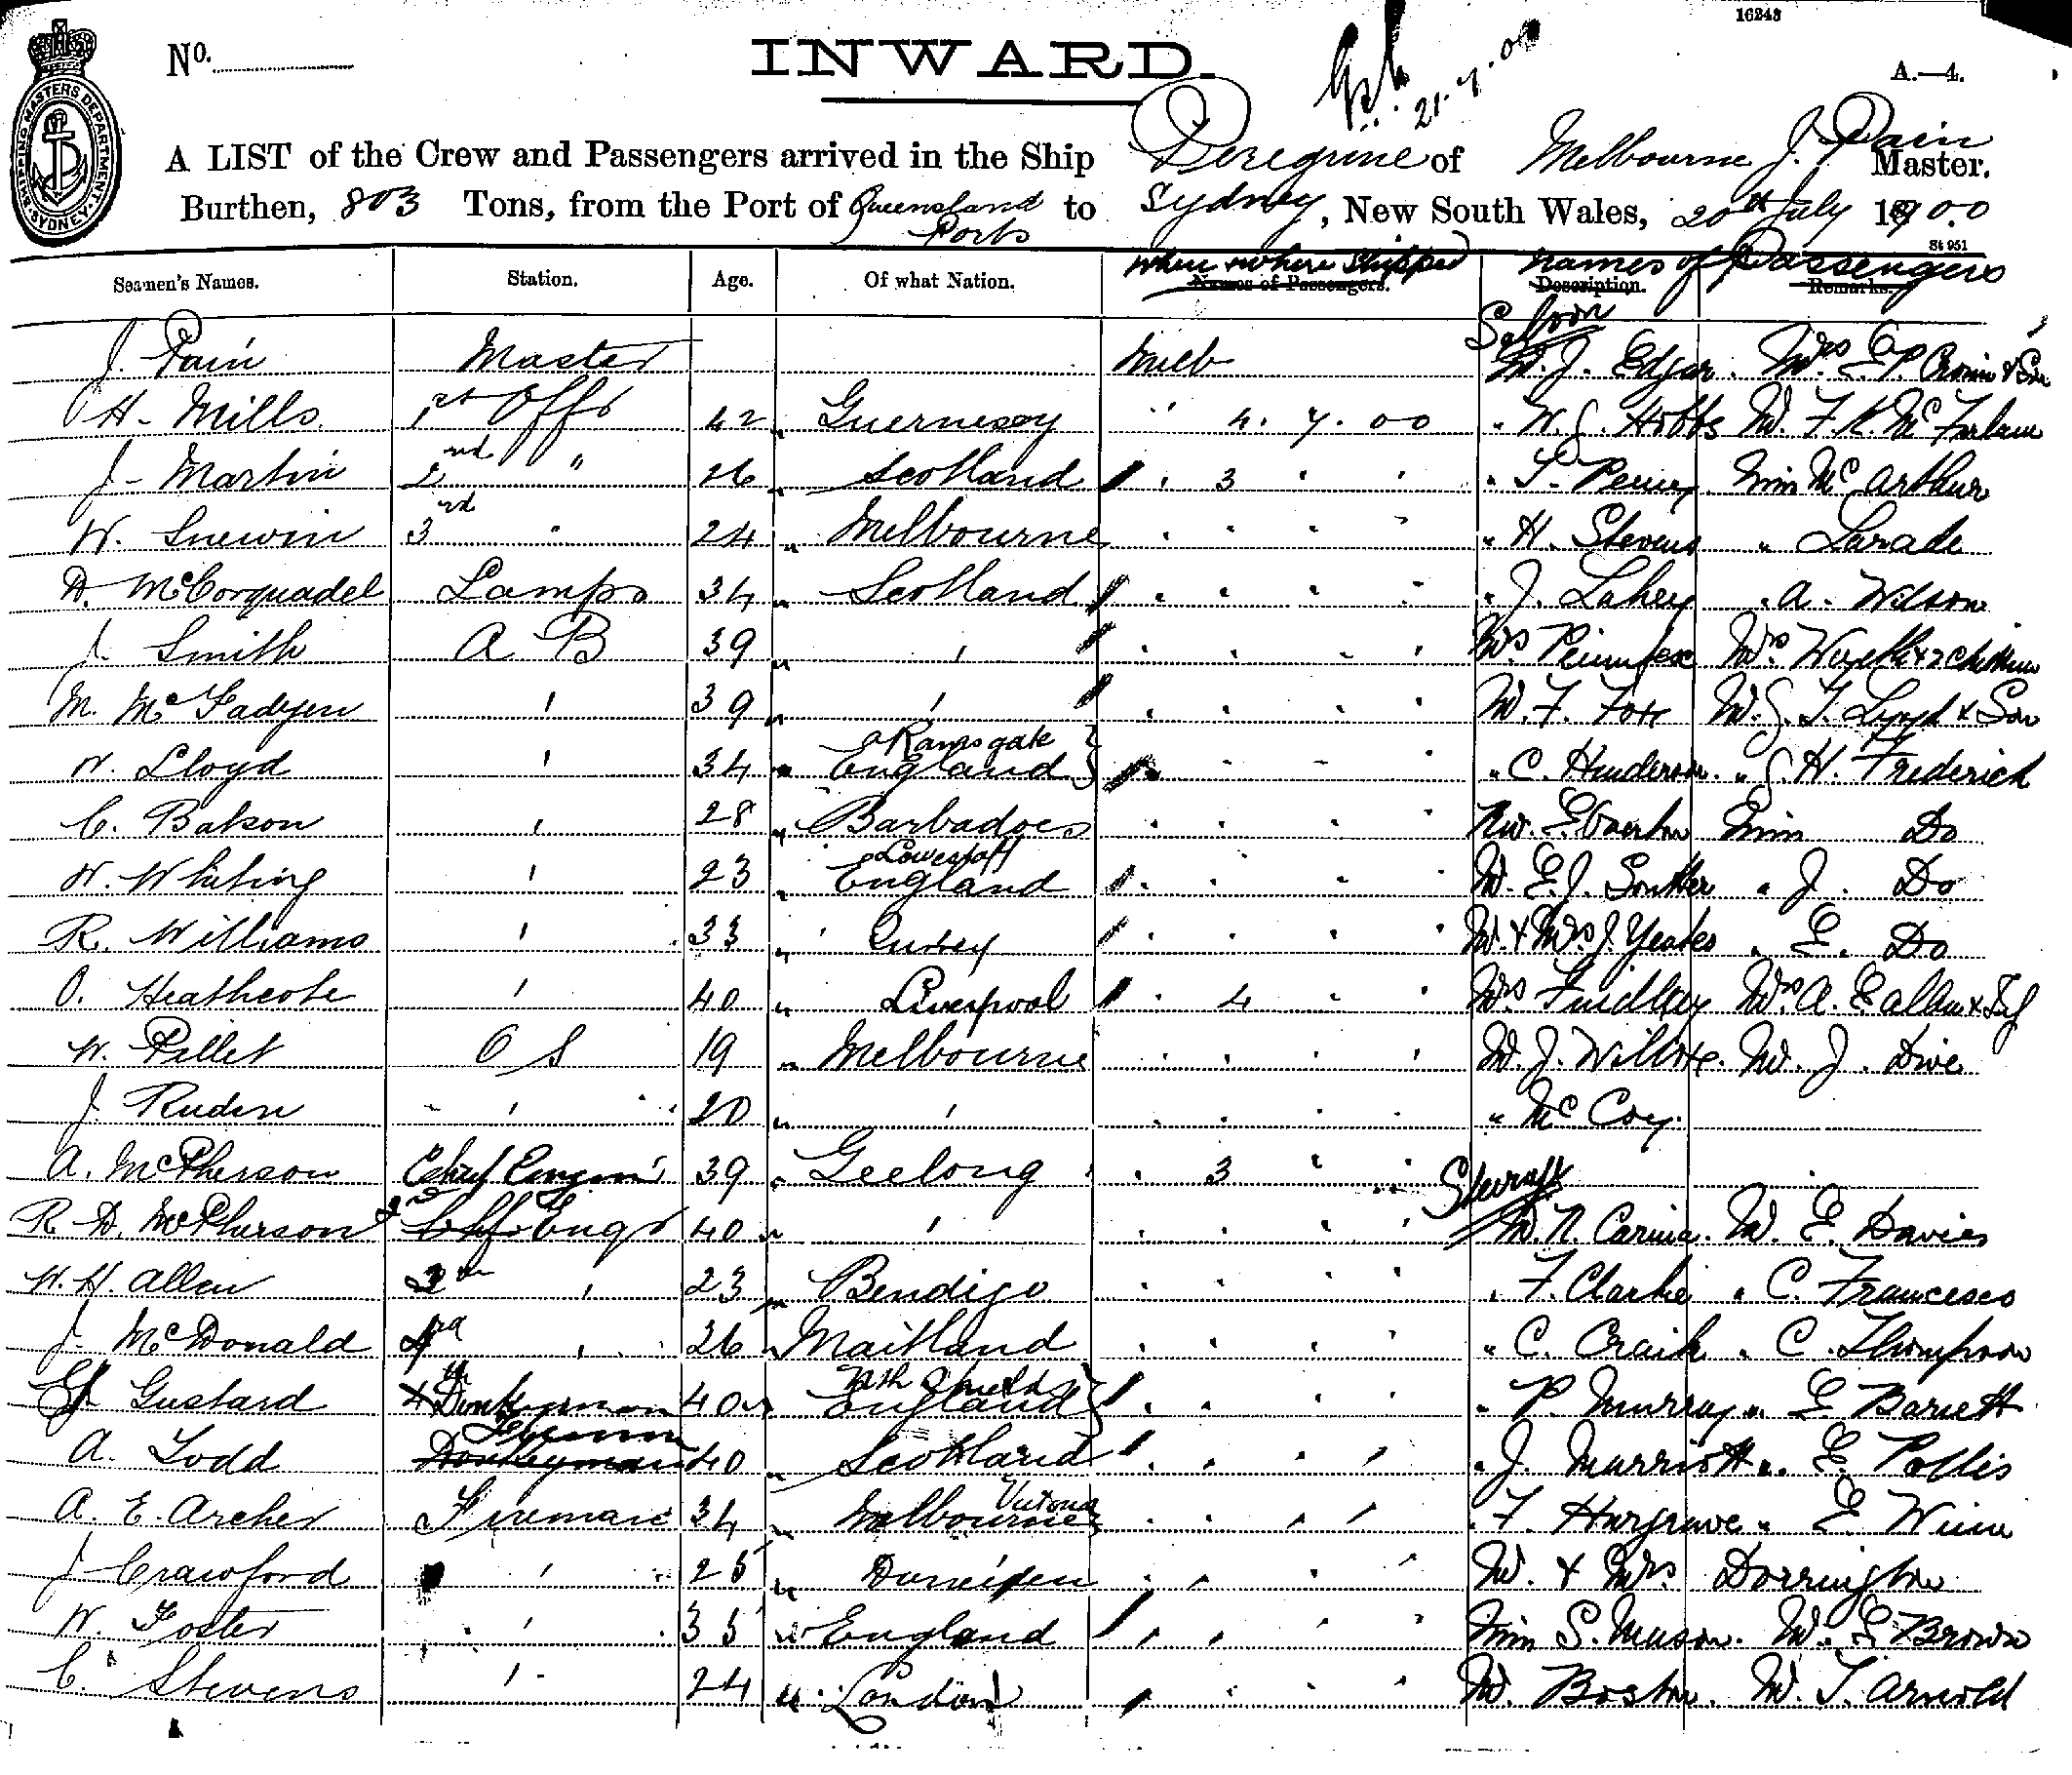 16243
No.
INWARD.
21.7.00
A.—4.
SHIPPING MASTERS DEPARTMENT. SYDNEY.
A LIST of the Crew and Passengers arrived in the Ship Peregrine of Melbourne J. Pain Master.
Burthen, 803 Tons, from the Port of Queensland Ports to Sydney, New South Wales, 20th July 1900
St 951
Seamen's Names. Station. Age. Of what Nation. When & where Shipped Names of Passengers. Names of Passengers Description. Remarks.
Saloon
J. Pain Master Melb M. J. Edgar. Mrs E. P. Cronin & Son
H. Mills 1st Offr 42 Guernsey " 4. 7. 00 " W. J. Hobbs M. F. K. McFarlane
J. Martin 2nd " 26 Scotland " 3 " " " Miss McArthur
W. Snewin 3rd " 24 Melbourne " " " " " H. Stevens " Larade
D. McCorquadel Lamps 34 Scotland " " " " " J. Lahey " A. Wilson
J. Smith A B 39 " " " " " Mrs Mrs & 2 Children
M. McFadyen " 39 " " " " " M. F. Fox M. J. T. Loyd & Son
W. Lloyd " 34 Ramsgate England " " " " " C. Henderson " J. H. Frederick
C. Batson " 28 Barbadoes " " " " Miss Do
W. Whiting " 23 Lowestoft England " " " " M. E. J. Souther " J. Do
R. Williams " 33 " " " " M. & Mrs J. Yeates " E. Do
O. Heathcote " 40 Liverpool " 4 " " Mrs Findlay Mrs A. E. Allen &
W. Pellet O S 19 Melbourne " " " " M. J. Willcox. M. J. Dive
J. Ruden " 20 " " " " " " McCoy.
A. McPherson Chief Engin 39 Geelong " 3 " "
Steerage
R. D. McPherson 2nd Engr 40 " " " " " M. N. M. E. Davies
W. H. Allen 3 " 23 Bendigo " " " " " F. Clarke " C. Francesco
J. McDonald 4 " 26 Maitland " " " " " C. Craik " C. Thompson
Gustard Donkeyman 40 Nth Shields England " " " " " P. Murray " E. Barrett
A. Todd Fireman Donkeyman 40 Scotland " " " " " J. Marriott " E. Pollis
A. E. Archer Fireman 34 Melbourne Victoria " " " " " F. Hargrave " E.
J. Crawford " 25 " " " " M. & Mrs Dorrington
W. Foster " 35 England " " " " Miss S. Mason. M. E. Brown
C. Stevens " 24 London " " " " M. Boston. M. T. Arnold